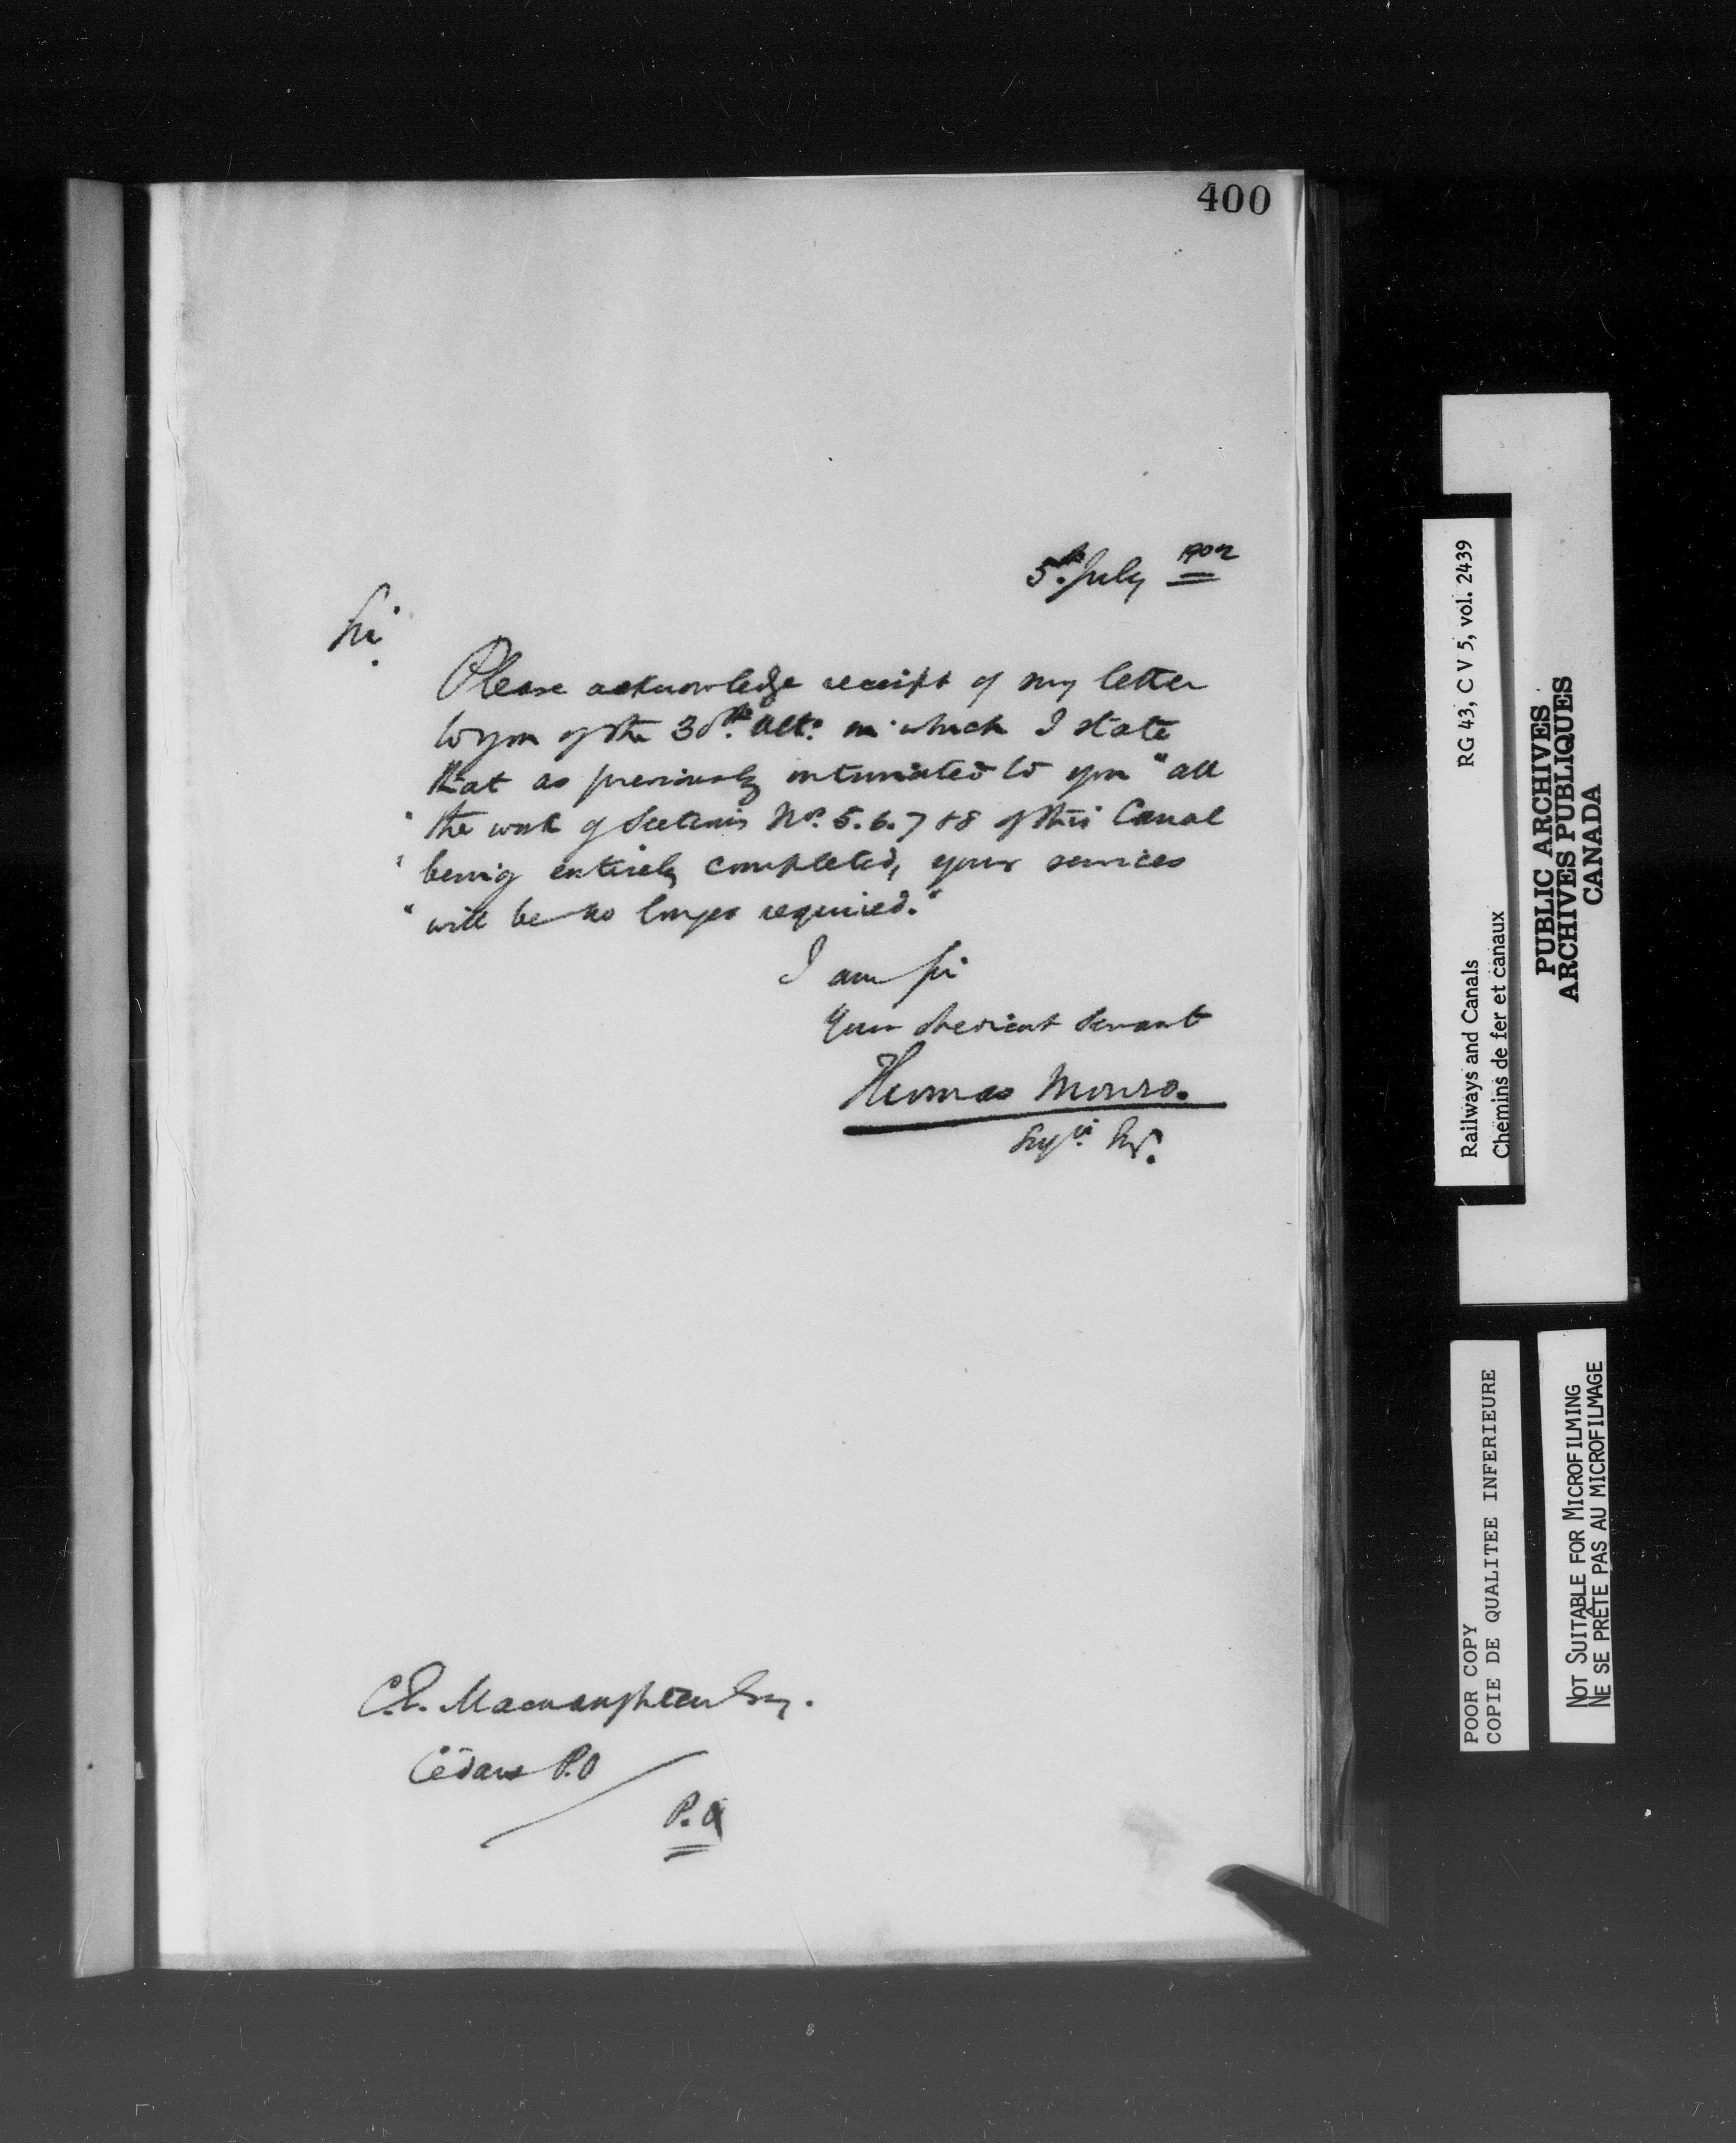 400
5th July 1902
Sir
Please acknowledge receipt of my letter
to you of the 30th ulto in which I state
that as previously intimated to you "all
" the work of Sections No. 5. 6. 7 & 8 of this Canal
" being entirely completed, your services
" will be no longer required."
I am Sir
Your obedient servant
Thomas Monro.
C.E. Macnaughton Esq.
Cedars P.O
P.Q
RG 43, C V 5, vol. 2439
Railways and Canals
Chemins de fer et canaux
PUBLIC ARCHIVES
ARCHIVES PUBLIQUES
CANADA
POOR COPY
COPIE DE QUALITEE INFERIEURE
NOT SUITABLE FOR MICROFILMING
NE SE PRÊTE PAS AU MICROFILMAGE